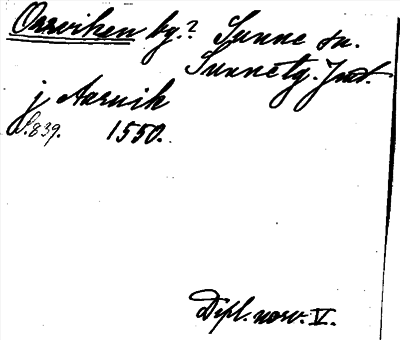 Orrviken by.? Sunne sn.
Sunne tg. Jmt.
j Aaruik
S. 839. 1550.
Dipl. norv. V.